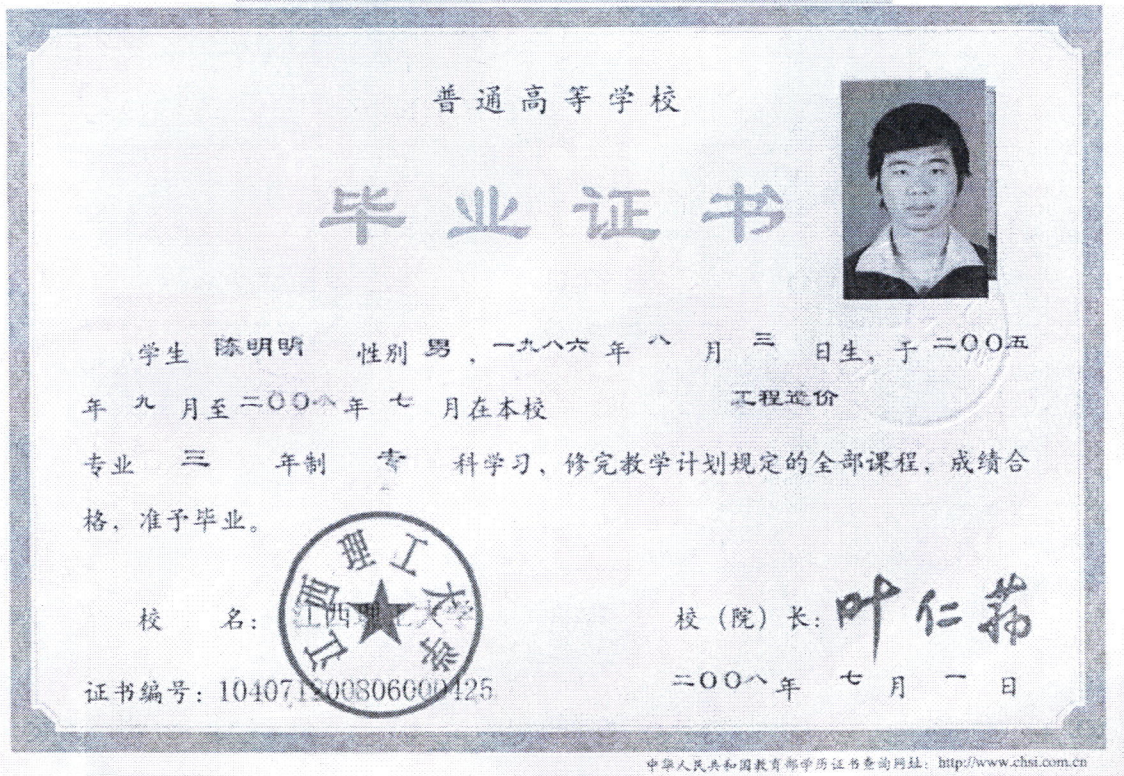 普通高等学校
毕业证书
学生 陈明明 性别 男，一九八六 年 八 月 三 日生，于 二〇〇五
年 九 月至 二〇〇八 年 七 月在本校 工程造价
专业 三 年制 专 科学习，修完教学计划规定的全部课程，成绩合
格，准予毕业。
江西理工大学
校 名：江西理工大学
校（院）长：叶仁荪
证书编号：104071200806000425
二〇〇八 年 七 月 一 日
中华人民共和国教育部学历证书查询网址：http://www.chsi.com.cn